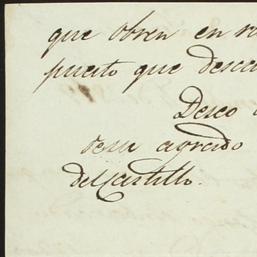 que obren en
puerto que
Deseo
desu agrado
del Castillo.